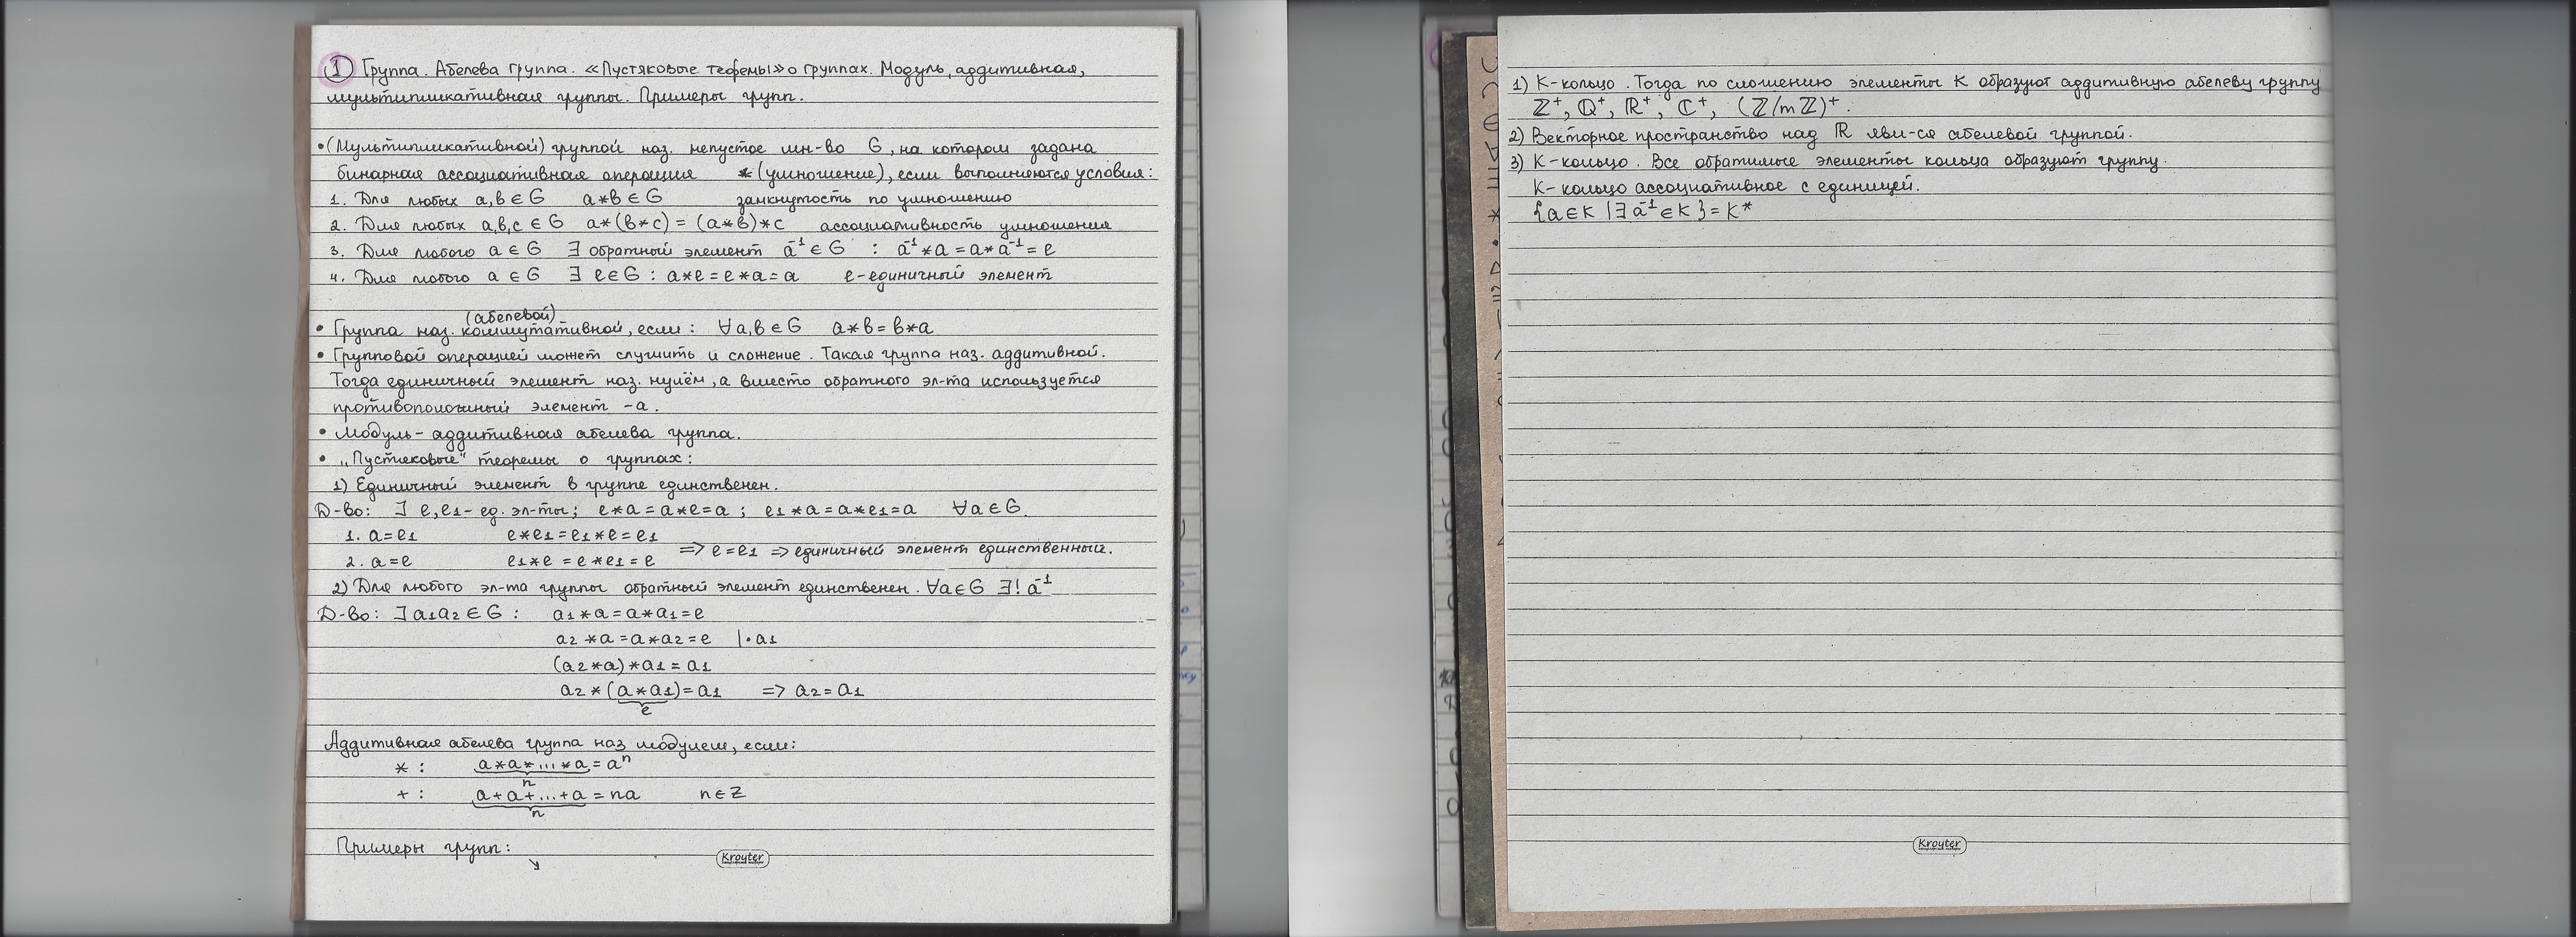 1 Группа. Абелева группа. «Пустяковые теоремы» о группах. Модуль, аддитивная,
мультипликативная группы. Примеры групп.
• (Мультипликативной) группой наз. непустое мн-во G, на котором задана
бинарная ассоциативная операция * (умножение), если выполняются условия:
1. Для любых a,b ∈ G a*b ∈ G замкнутость по умножению
2. Для любых a,b,c ∈ G a*(b*c) = (a*b)*c ассоциативность умножения
3. Для любого a ∈ G ∃ обратный элемент a⁻¹ ∈ G : a⁻¹*a = a*a⁻¹ = e
4. Для любого a ∈ G ∃ e ∈ G : a*e = e*a = a e-единичный элемент
(абелевой)
• Группа наз. коммутативной, если: ∀a,b ∈ G a*b = b*a
• Групповой операцией может служить и сложение. Такая группа наз. аддитивной.
Тогда единичный элемент наз. нулём, а вместо обратного эл-та используется
противоположный элемент -a.
• Модуль - аддитивная абелева группа.
• „Пустяковые" теоремы о группах:
1) Единичный элемент в группе единственен.
Д-во: ∃ e,e₁- ед. эл-ты; e*a = a*e = a ; e₁*a = a*e₁ = a ∀a ∈ G
1. a = e₁ e*e₁ = e₁*e = e₁
2. a = e e₁*e = e*e₁ = e => e = e₁ => единичный элемент единственный.
2) Для любого эл-та группы обратный элемент единственен. ∀a ∈ G ∃! a⁻¹
Д-во: ∃ a₁a₂ ∈ G : a₁*a = a*a₁ = e
a₂*a = a*a₂ = e |·a₁
(a₂*a)*a₁ = a₁
a₂*(a*a₁) = a₁ => a₂ = a₁
e
Аддитивная абелева группа наз модулем, если:
* : a*a*...*a = aⁿ
n
+ : a+a+...+a = na n ∈ Z
n
Примеры групп:
Kroyter
1) K-кольцо. Тогда по сложению элементы K образуют аддитивную абелеву группу
ℤ⁺, ℚ⁺, ℝ⁺, ℂ⁺, (ℤ/mℤ)⁺.
2) Векторное пространство над ℝ явл-ся абелевой группой.
3) K-кольцо. Все обратимые элементы кольца образуют группу.
K-кольцо ассоциативное с единицей.
{a ∈ K | ∃ a⁻¹ ∈ K} = K*
Kroyter